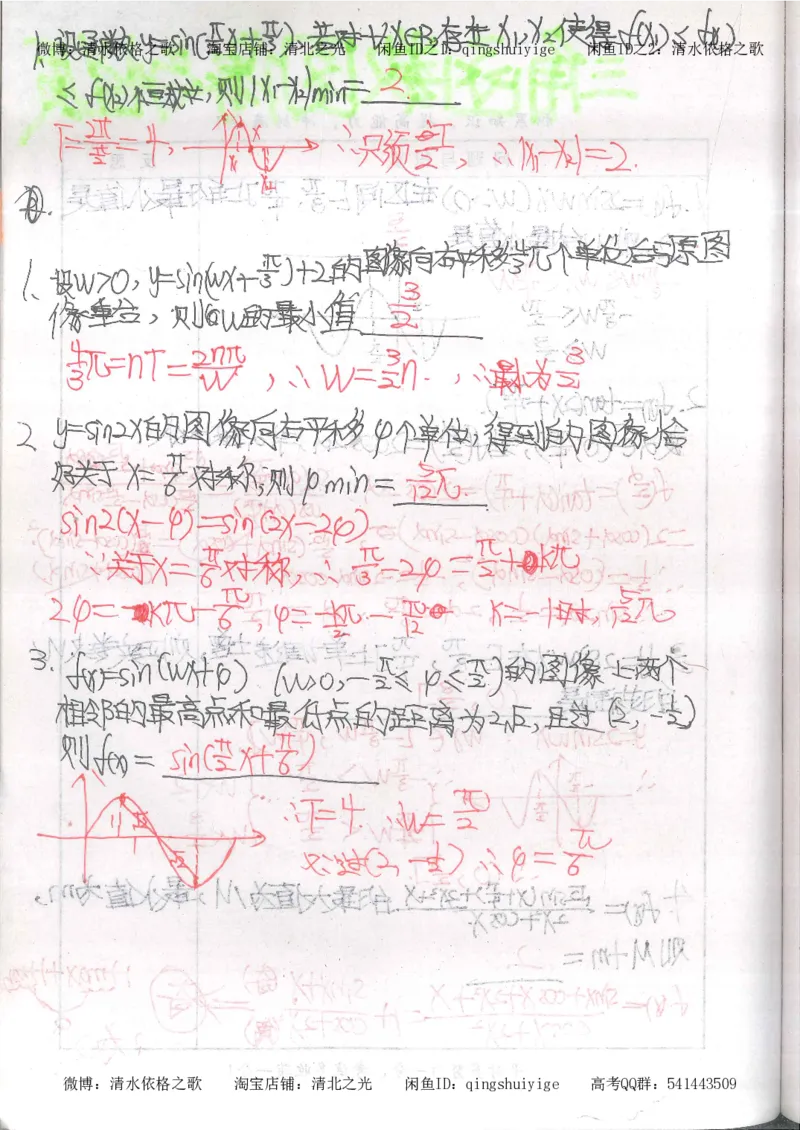 1、设函数y=sin(π/2x+π/3),若对∀x∈R,存在x₁,x₂使得f(x₁)≤f(x)
微博:清水依格之歌 淘宝店铺:清北之光 闲鱼ID之1:qingshuiyige 闲鱼ID之2:清水依格之歌
≤f(x₂)恒成立,则|x₁-x₂|min=2
T=2π/(π/2)=4, ∴只须T/2, ∴|x₁-x₂|=2.
1、设w>0, y=sin(wx+π/3)+2的图像向右平移4/3π个单位后与原图
像重合,则w的最小值 3/2
4/3π=nT=2nπ/w, ∴w=3/2n. ∴最小为3/2
2 y=sin2x的图像向右平移φ个单位,得到的图像恰
好关于x=π/6对称,则φmin=5/12π.
sin2(x-φ)=sin(2x-2φ)
∵关于x=π/6对称, ∴π/3-2φ=π/2+kπ
2φ=-kπ-π/6, φ=-kπ/2-π/12 k=-1时, 5/12π
3. f(x)=sin(wx+φ) (w>0,-π/2≤φ≤π/2)的图像上两个
相邻的最高点和最低点的距离为2√2,且过(2,-1/2)
则f(x)=sin(π/2x+π/6)
∴T=4 ∴w=π/2
又∵过(2,-1/2) ∴φ=π/6
微博:清水依格之歌 淘宝店铺:清北之光 闲鱼ID:qingshuiyige 高考QQ群:541443509